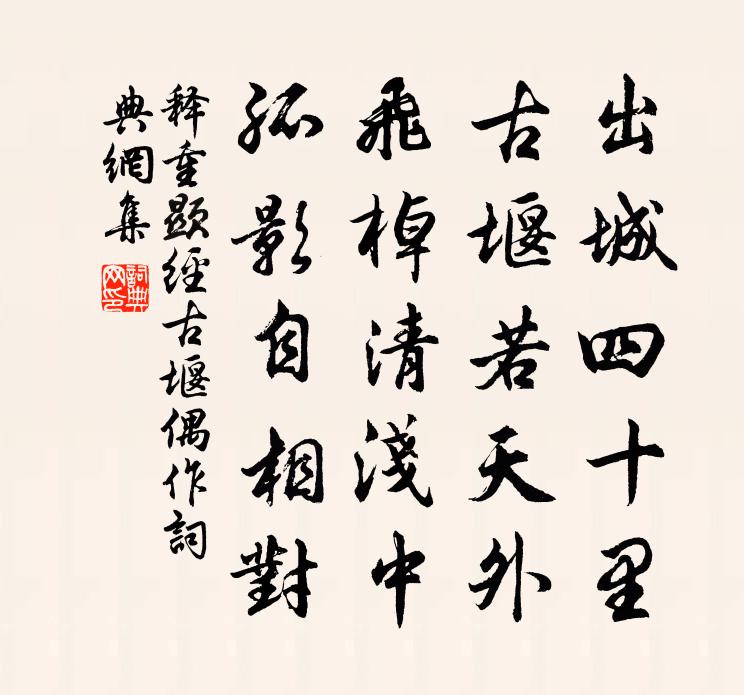 出城四十里
古堰若天外
飛棹清淺中
孤影自相對
釋重顯經古堰偶作詞
典網集
詞典網印